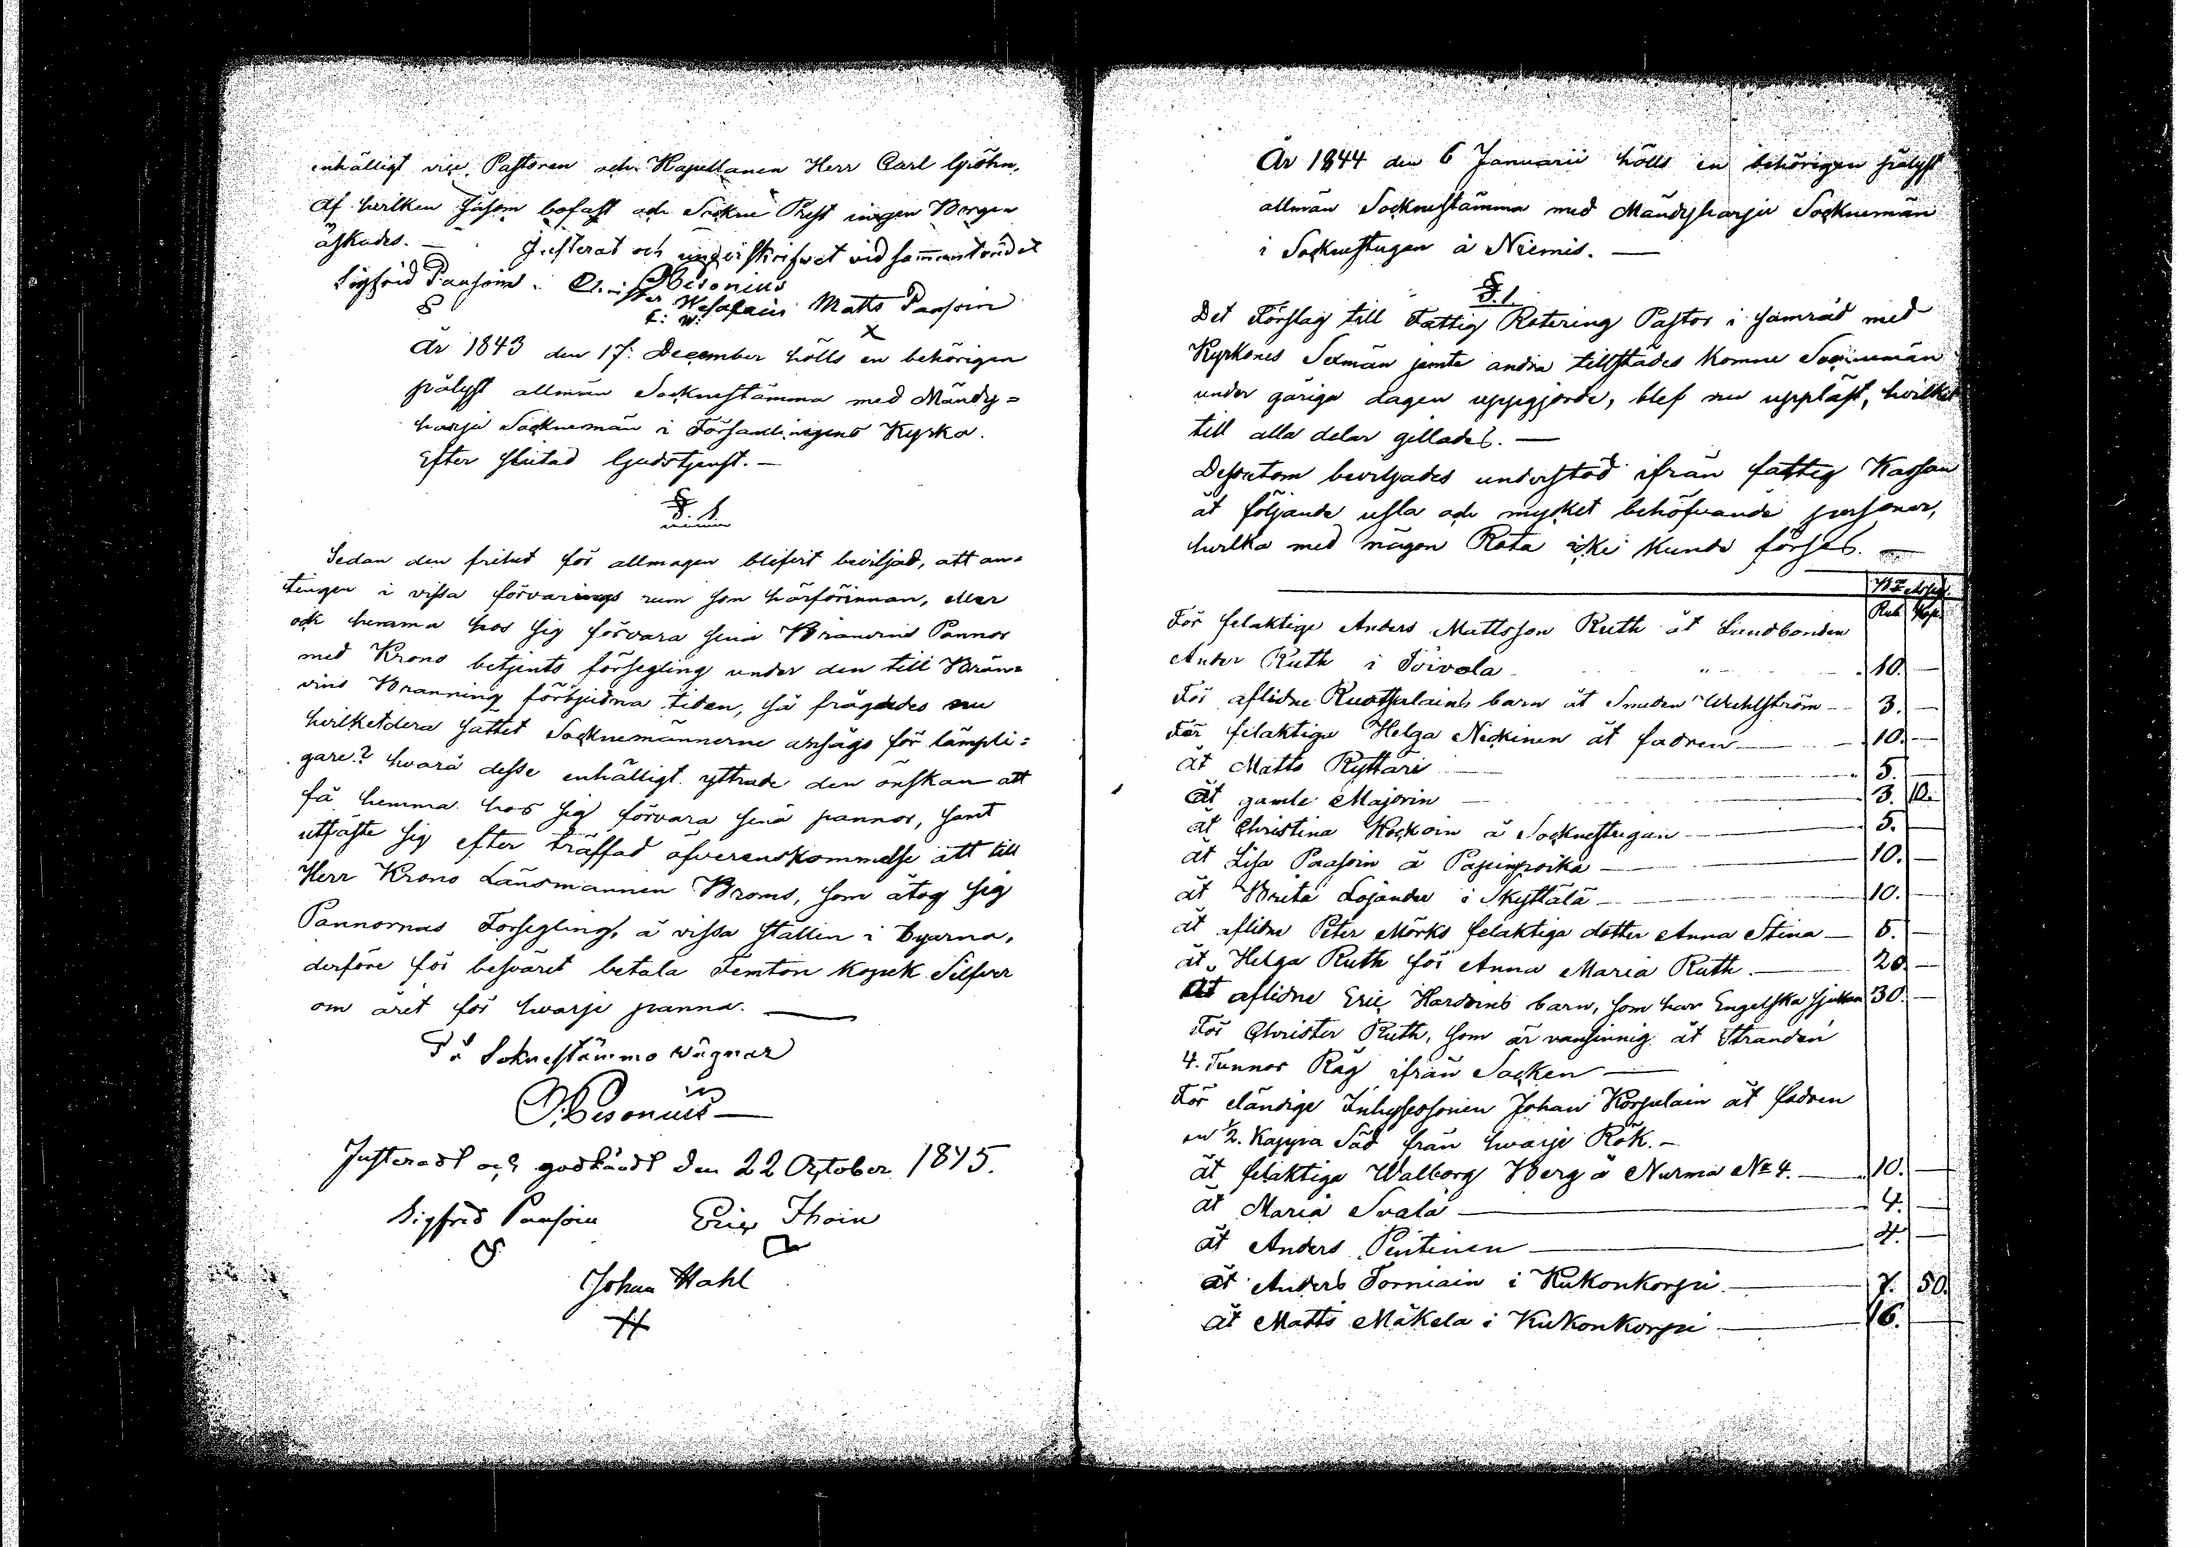 enhälligt vice Pastoren och Kapellanen Herr Carl Gröhn,
Af hvilken såsom bofast och Sockne Prest ingen Borgen
äskades. —
Justerat och underskrifvet vid sammanträdet
Sigfrid Paasoin. Christer Wesalain Matts Paasoin
Besonius
E: W:
År 1843 den 17: December hölls en behörigen
pålyst allmän Socknestämma med Mändy=
harju Socknemän i Församlingens Kyrka.
Efter slutad Gudstjenst. —
§. 1.
Sedan den frihet för allmogen blifvit beviljad, att an=
tingen i vissa förvarings rum som härförinnan, eller
ock hemma hos sig förvara sina Bränvins Pannor
med Krono betjents försegling under den till Brän=
vins Branning förbjudna tiden, så frågades nu
hvilketdera sättet Socknemännerne ansågo för lämpli=
gare? hvarå desse enhälligt yttrade den önskan att
få hemma hos sig förvara sina pannor, samt
utfäste sig efter träffad öfverenskommelse att till
Herr Krono Länsmannen Broms, som åtog sig
Pannornas Forsegling, å vissa stallen i byarna,
derföre för besväret betala Femton Kopek Silfver
om året för hvarje panna. —
På Soknestämmo wägnar
Besonius
Justeradt och godkändt den 22 October 1845.
Sigfrid Paasoin Eric Ihoin
Johan Hahl
År 1844 den 6 Januarii hölls en behörigen pålyst
allmän Socknestämma med Mändyharju Socknemän
i Socknestugan å Niemis. —
§. 1.
Det Förslag till Fattig Rotering Pastor i samråd med
Kyrkones Sexmän jemte andra tillstädes komne Socknemän
under gårige dagen uppgjorde, blef nu uppläst, hvilket
till alla delar gillades. —
Dessutom beviljades understöd ifrån fattig Kassan
åt följande usla och mycket behöfvande personer,
hvilka med någon Rota icke kunde förses. —
Bco Assign.
Rub Kop
För felaktige Anders Mattsson Ruth åt Landbonden
Ander Ruth i Toivola 10. —
För aflidne Ruotsalains barn åt Smeden Wahlström — 3. —
För felaktiga Helga Nickinen åt fadren — 10. —
åt Matts Ryttäri — 5. —
åt gamle Majorin — 3. 10.
åt Christina Kockoin å Socknestugan — 5. —
åt Lisa Paasoin å Papinpoika — 10. —
åt Brita Lojander i Skyttälä — 10. —
åt aflidne Peter Mörks felaktiga dotter Anna Stina — 5. —
åt Helga Ruth för Anna Maria Ruth. — 20. —
åt aflidne Eric Hardoins barn, som har Engelska sjukan 30. —
För Christer Ruth, som är vansinnig åt Stranden
4. Tunnor Råg ifrån Socken —
För eländige Inhyseson Johan Korpelain åt fadren
en ½. Kappa Säd från hvarje Rök. —
åt felaktiga Walborg Berg å Nurmä No 4. — 10. —
åt Maria Svala — 4. —
åt Anders Pentinen — 4. —
åt Anders Torniain i Kukonkorpi — 7. 50.
åt Matts Mäkela i Kukonkorpi — 16. —